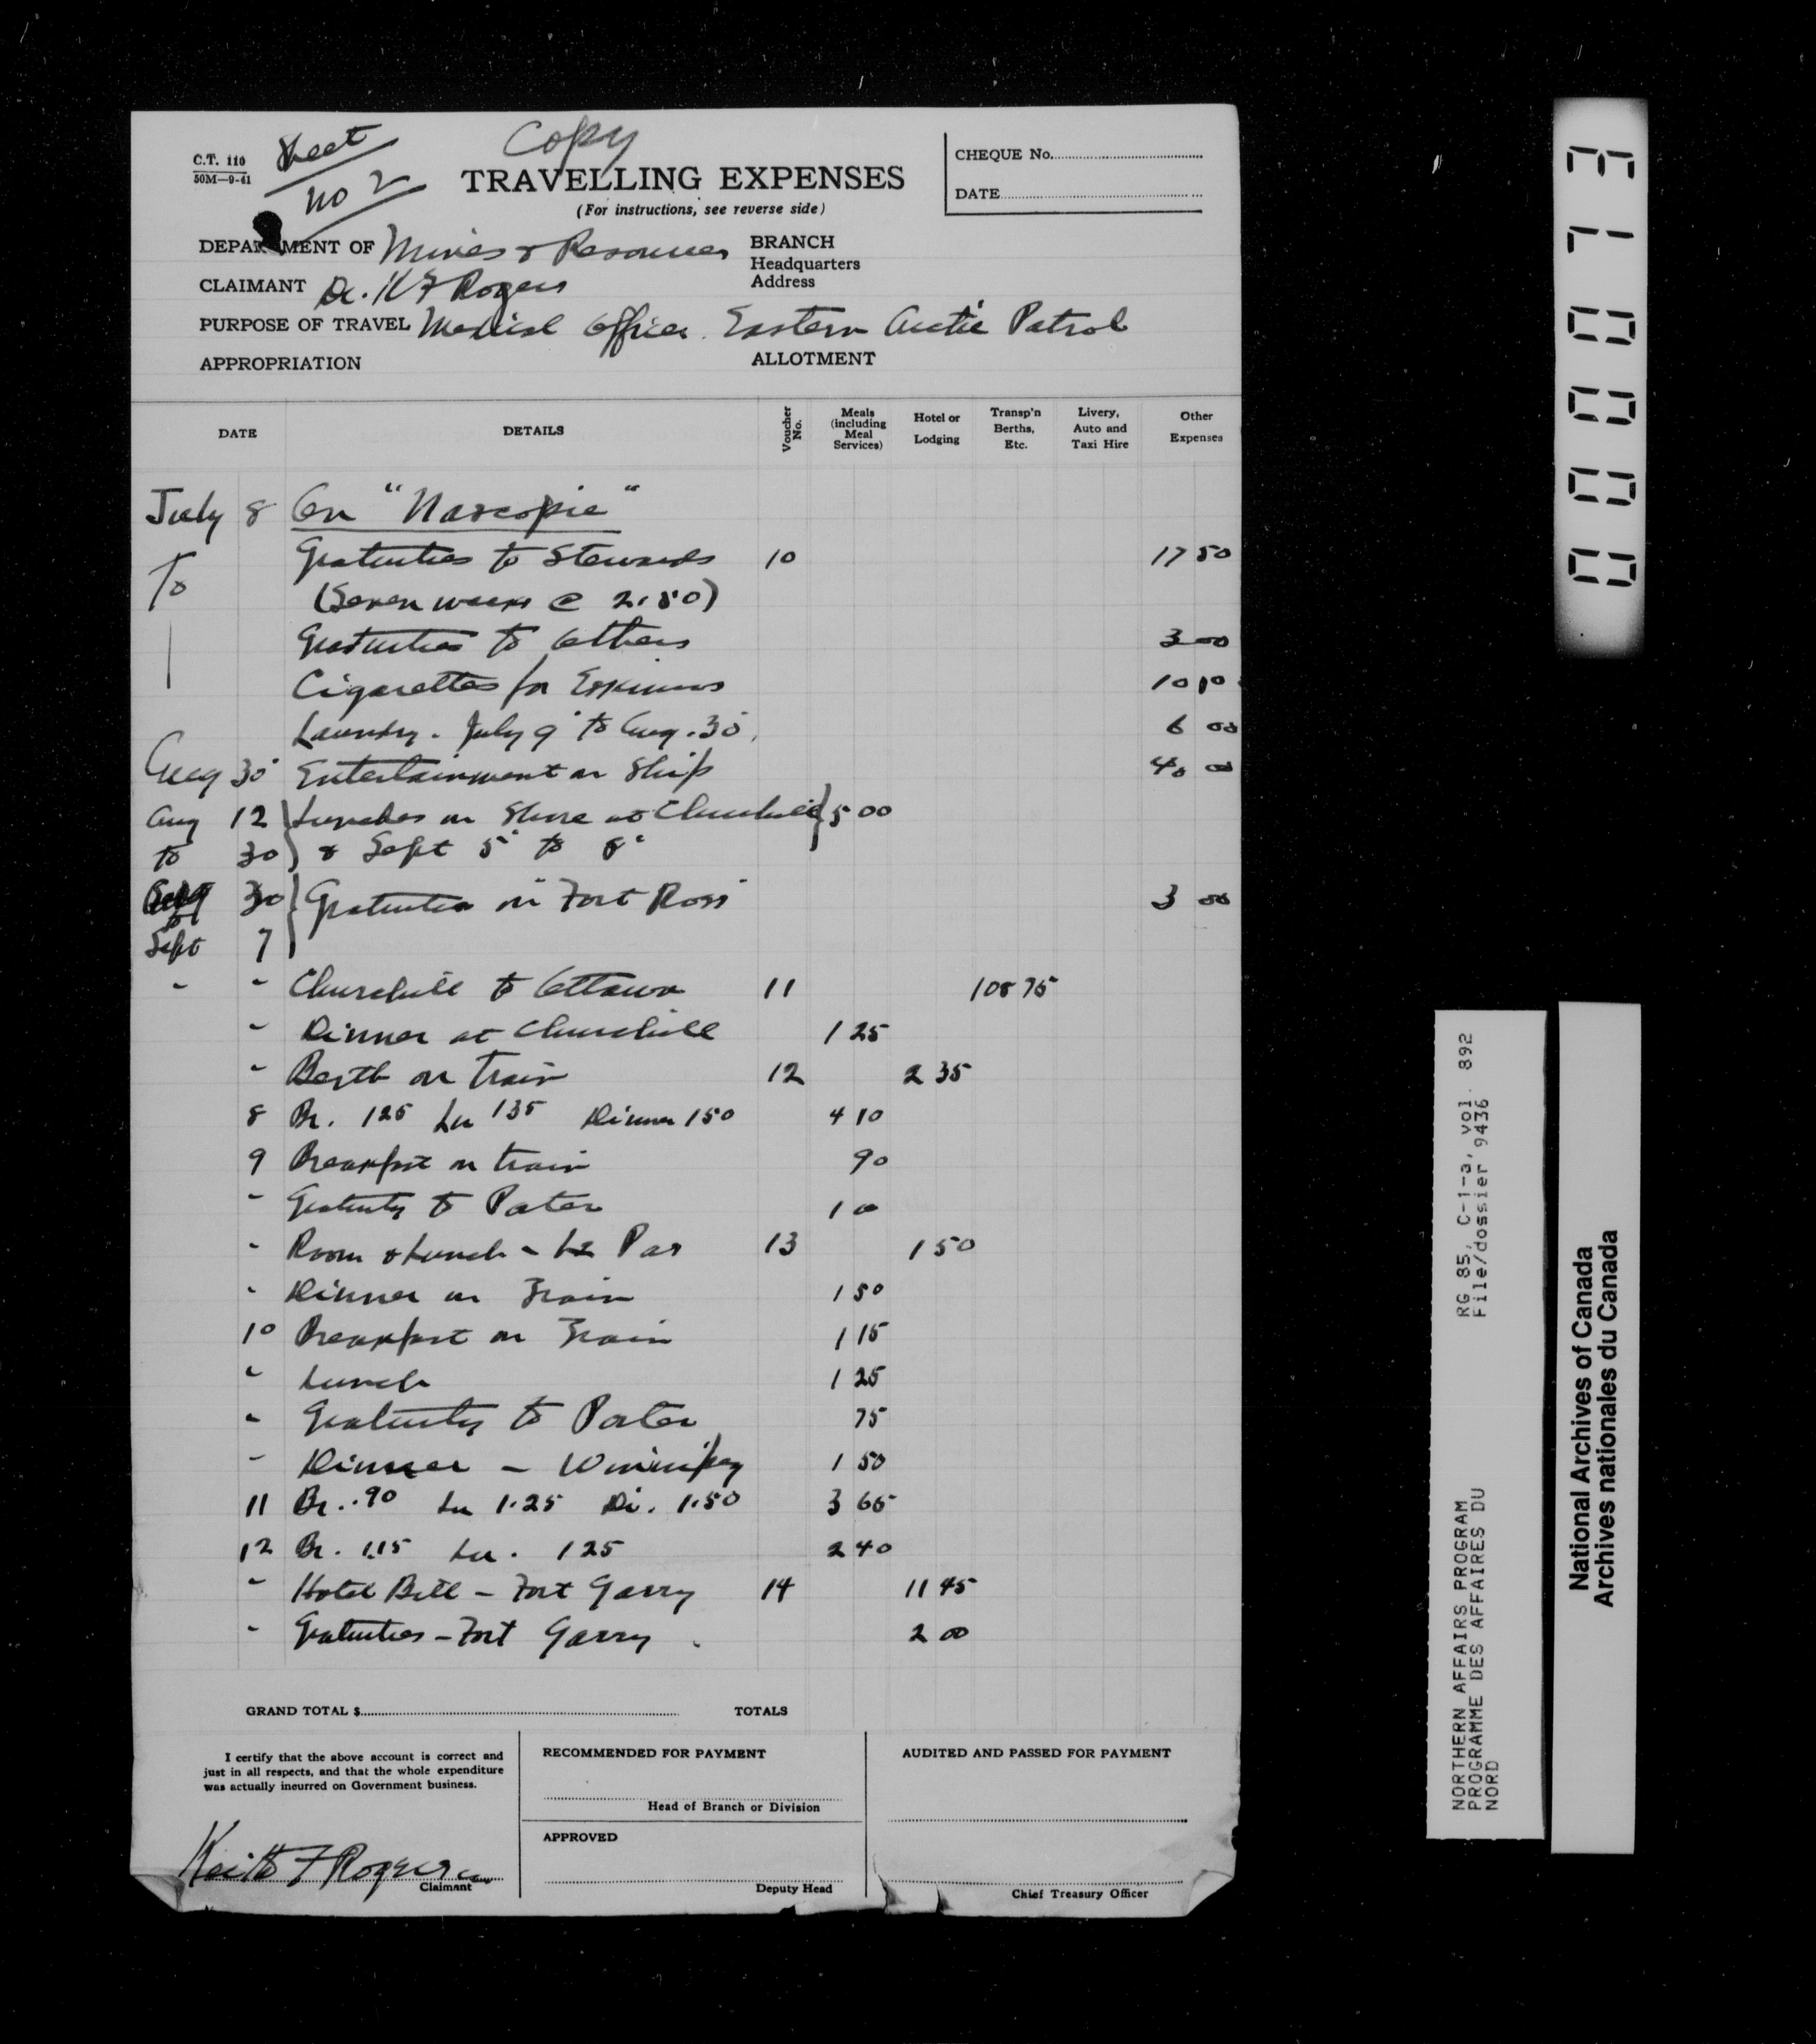 C.T. 110
50M—9-41
Sheet
no 2
Copy
TRAVELLING EXPENSES
(For instructions, see reverse side)
CHEQUE No.
DATE
DEPARTMENT OF Mines & Resources
BRANCH
Headquarters
Address
CLAIMANT Dr. K F Rogers
PURPOSE OF TRAVEL Medical Officer. Eastern Arctic Patrol
APPROPRIATION ALLOTMENT
DATE DETAILS Voucher No. Meals (including Meal Services) Hotel or Lodging Transp'n Berths, Etc. Livery, Auto and Taxi Hire Other Expenses
July 8 On "Nascopie"
To Gratuities to Stewards 10 17 50
(Seven weeks @ 2.50)
Gratuities to Others 3 00
Cigarettes for Eskimos 10 10
Laundry. July 9 to Aug. 30. 6 00
Aug 30 Entertainment on Ship 40 00
Aug 12 Lunches on Shore at Churchill 5 00
to 30 & Sept 5 to 8
Aug 30 Gratuities on "Fort Ross" 3 00
to
Sept 7
" " Churchill to Ottawa 11 108 75
" Dinner at Churchill 1 25
" Berth on Train 12 2 35
8 Br. 125 Lu 135 Dinner 150 4 10
9 Breakfast on train 90
" Gratuity to Porter 1 00
" Room & Lunch - The Pas 13 1 50
" Dinner on Train 1 50
10 Breakfast on Train 1 15
" Lunch 1 25
" Gratuity to Porter 75
" Dinner - Winnipeg 1 50
11 Br. .90 Lu 1.25 Di. 1.50 3 65
12 Br. 1.15 Lu. 125 2 40
" Hotel Bill - Fort Garry 14 11 45
" Gratuities - Fort Garry. 2 00
GRAND TOTAL $ TOTALS
I certify that the above account is correct and
just in all respects, and that the whole expenditure
was actually incurred on Government business.
Keith F Rogers
Claimant
RECOMMENDED FOR PAYMENT
Head of Branch or Division
APPROVED
Deputy Head
AUDITED AND PASSED FOR PAYMENT
Chief Treasury Officer
000713
RG 85, C-1-a, vol. 892
File/dossier 9436
NORTHERN AFFAIRS PROGRAM
PROGRAMME DES AFFAIRES DU
NORD
National Archives of Canada
Archives nationales du Canada